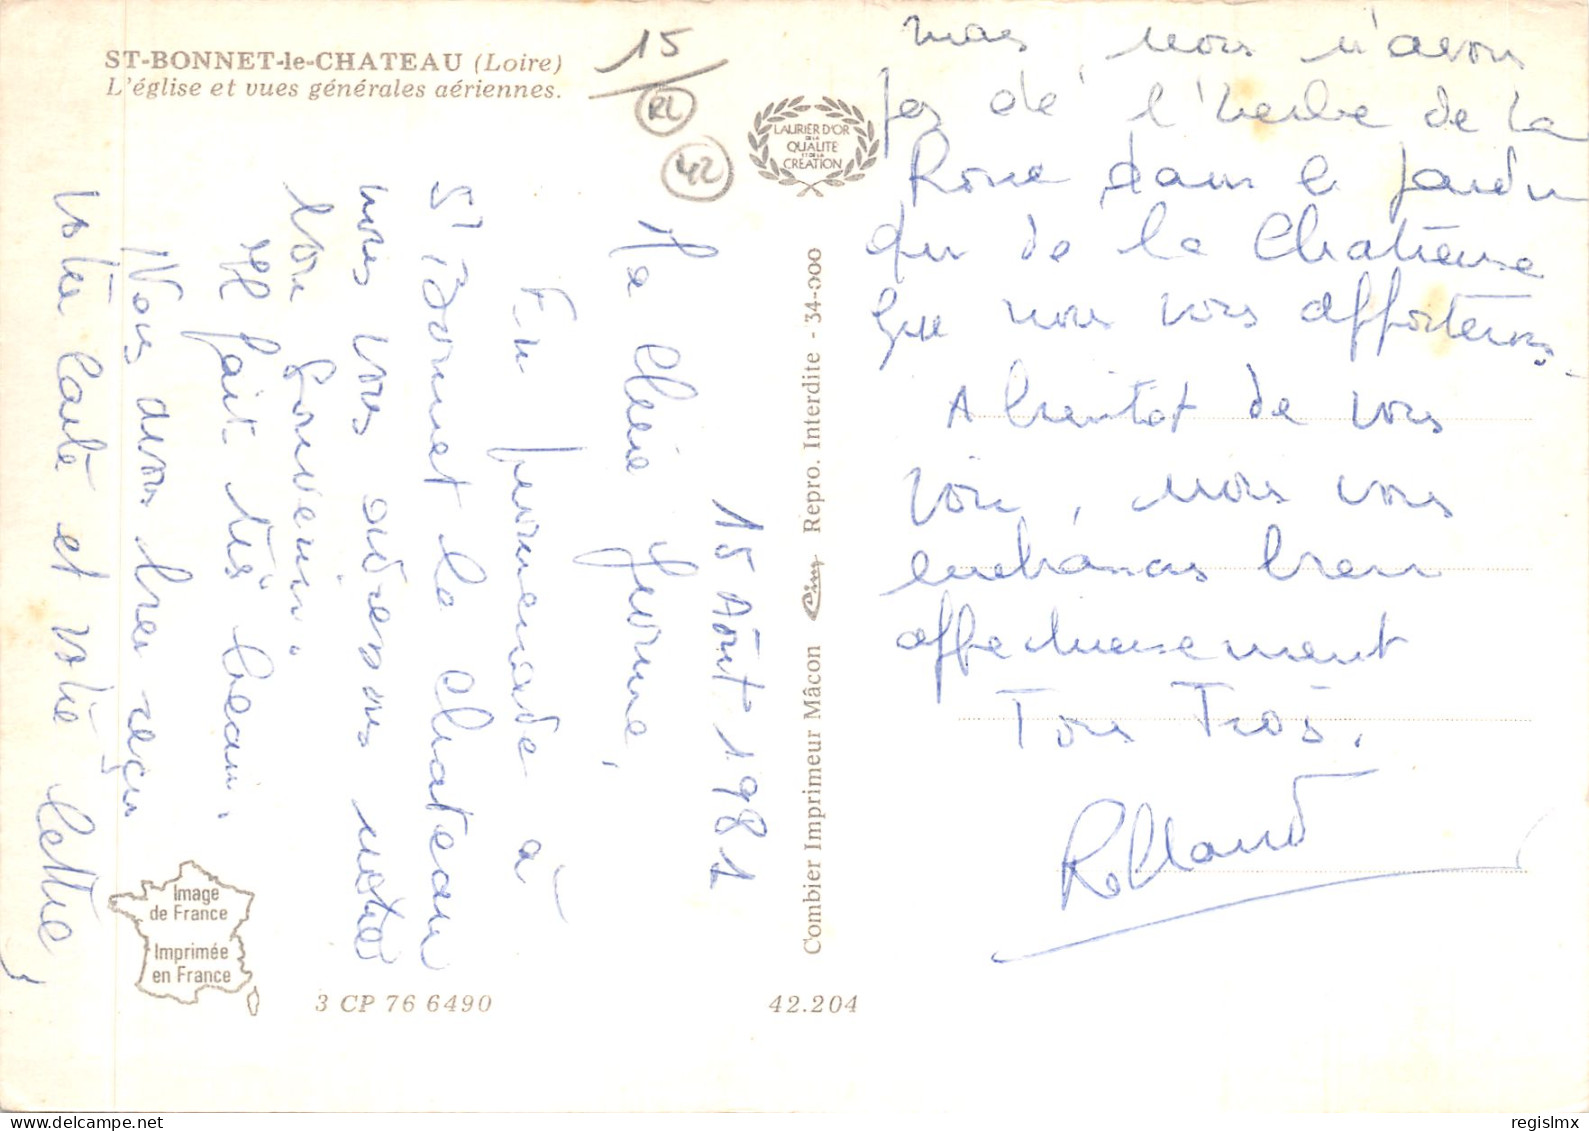 ST-BONNET-le-CHATEAU (Loire)
L'église et vues générales aériennes.
15
RL
42
LAURIER D'OR
DE LA
QUALITE
ET DE LA
CREATION
15 Août 1981
Ma Chère Yvonne,
En promenade à
St Bonnet le Chateau
nous vous adressons notre
bon souvenir.
Il fait très beau.
Nous avons bien reçu
votre carte et votre lettre,
mais nous n'avons
pas de l'herbe de la
Rome dans le jardin
de la Chatieuse
que nous vous apporterons.
A bientot de vous
voir, nous vous
embrassons bien
affectueusement
Tous Trois.
Rolland
Combier Imprimeur Mâcon Cim Repro. Interdite - 34-000
Image
de France
Imprimée
en France
3 CP 76 6490
42.204
regislmx